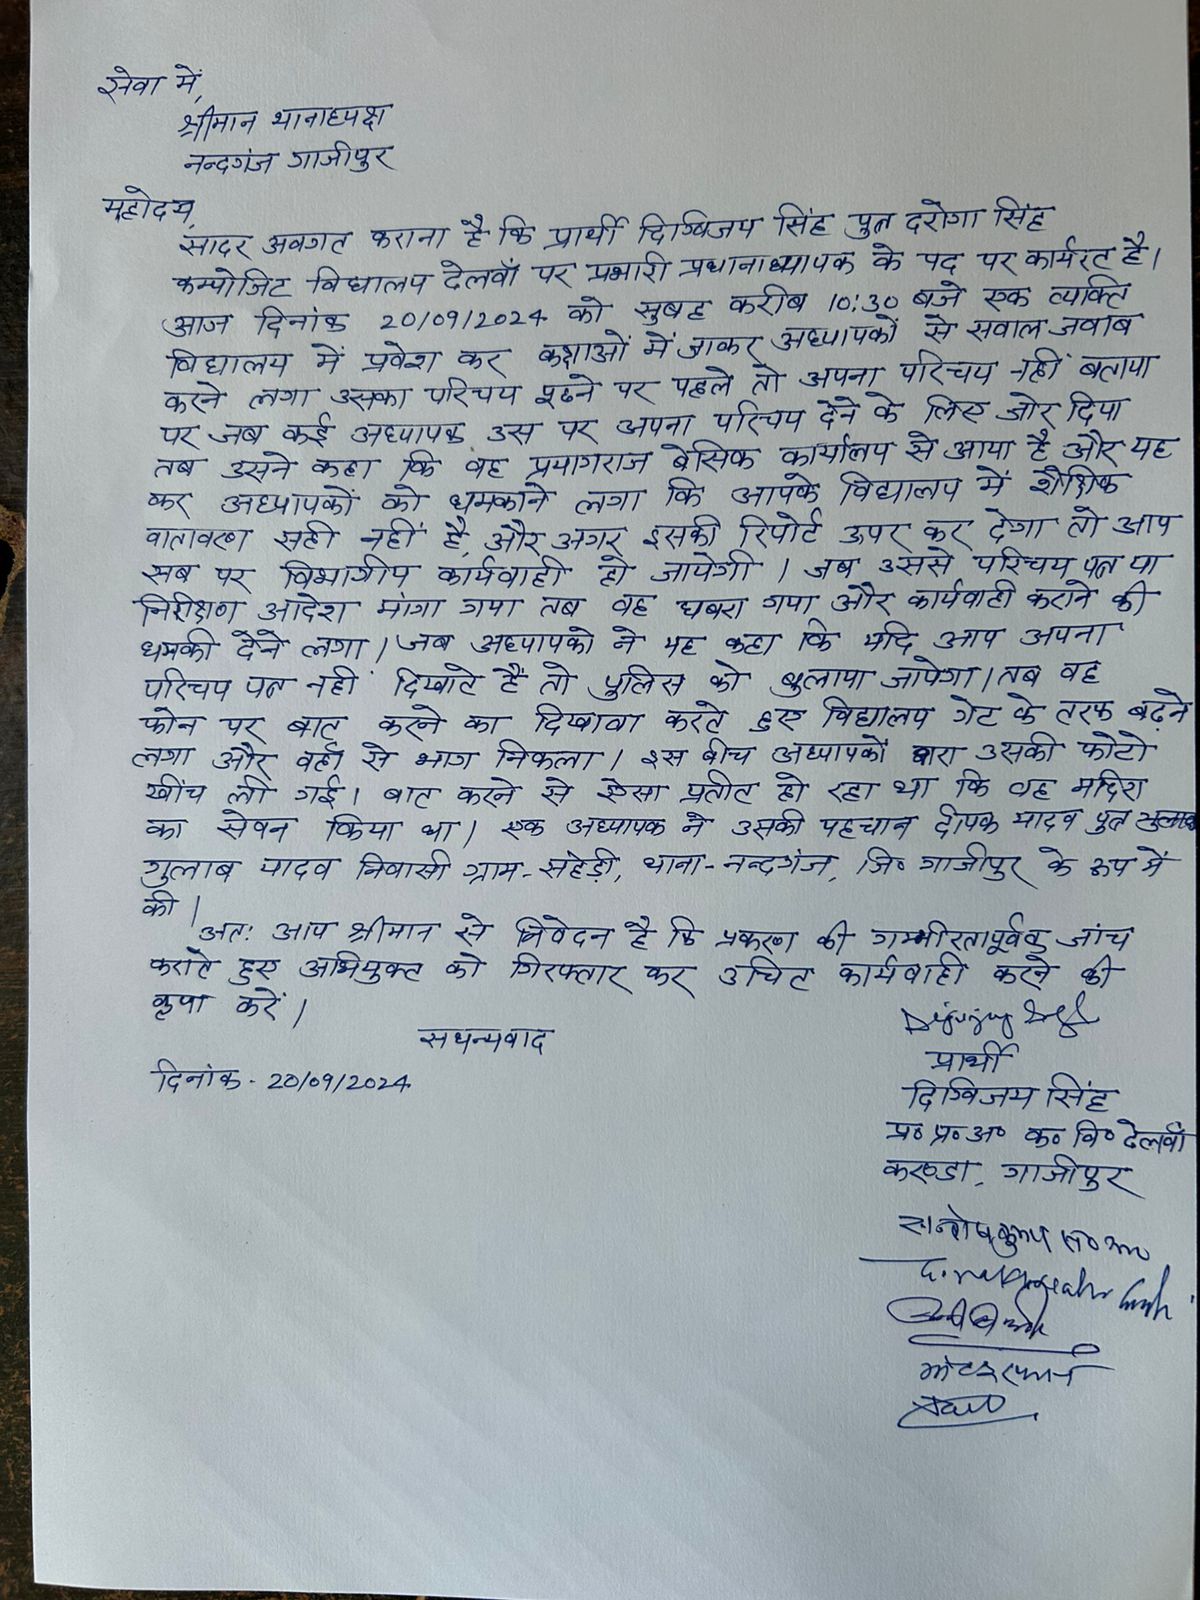 सेवा में,
श्रीमान थानाध्यक्ष
नन्दगंज गाजीपुर
महोदय,
सादर अवगत कराना है कि प्रार्थी दिग्विजय सिंह पुत्र दरोगा सिंह
कम्पोजिट विद्यालय देलवाँ पर प्रभारी प्रधानाध्यापक के पद पर कार्यरत है।
आज दिनांक 20/09/2024 को सुबह करीब 10:30 बजे एक व्यक्ति
विद्यालय में प्रवेश कर कक्षाओं में जाकर अध्यापकों से सवाल जवाब
करने लगा उसका परिचय पूछने पर पहले तो अपना परिचय नहीं बताया
पर जब कई अध्यापक उस पर अपना परिचय देने के लिए जोर दिया
तब उसने कहा कि वह प्रयागराज बेसिक कार्यालय से आया है और यह
कर अध्यापकों को धमकाने लगा कि आपके विद्यालय में शैक्षिक
वातावरण सही नहीं है, और अगर इसकी रिपोर्ट ऊपर कर देगा तो आप
सब पर विभागीय कार्यवाही हो जायेगी । जब उससे परिचय पत्र या
निरीक्षण आदेश मांगा गया तब वह घबरा गया और कार्यवाही कराने की
धमकी देने लगा । जब अध्यापको ने यह कहा कि यदि आप अपना
परिचय पत्र नहीं दिखाते हैं तो पुलिस को बुलाया जायेगा । तब वह
फोन पर बात करने का दिखावा करते हुए विद्यालय गेट के तरफ बढ़ने
लगा और वहाँ से भाग निकला । इस बीच अध्यापकों द्वारा उसकी फोटो
खींच ली गई । बात करने से ऐसा प्रतीत हो रहा था कि वह मदिरा
का सेवन किया था । एक अध्यापक ने उसकी पहचान दीपक यादव पुत्र
गुलाब यादव निवासी ग्राम-सहेड़ी, थाना-नन्दगंज, जि० गाजीपुर के रूप में
की ।
अतः आप श्रीमान से निवेदन है कि प्रकरण की गम्भीरतापूर्वक जांच
कराते हुए अभियुक्त को गिरफ्तार कर उचित कार्यवाही करने की
कृपा करें ।
सधन्यवाद
दिनांक - 20/09/2024
प्रार्थी
दिग्विजय सिंह
प्र० प्र० अ० क० वि० देलवाँ
करण्डा, गाजीपुर